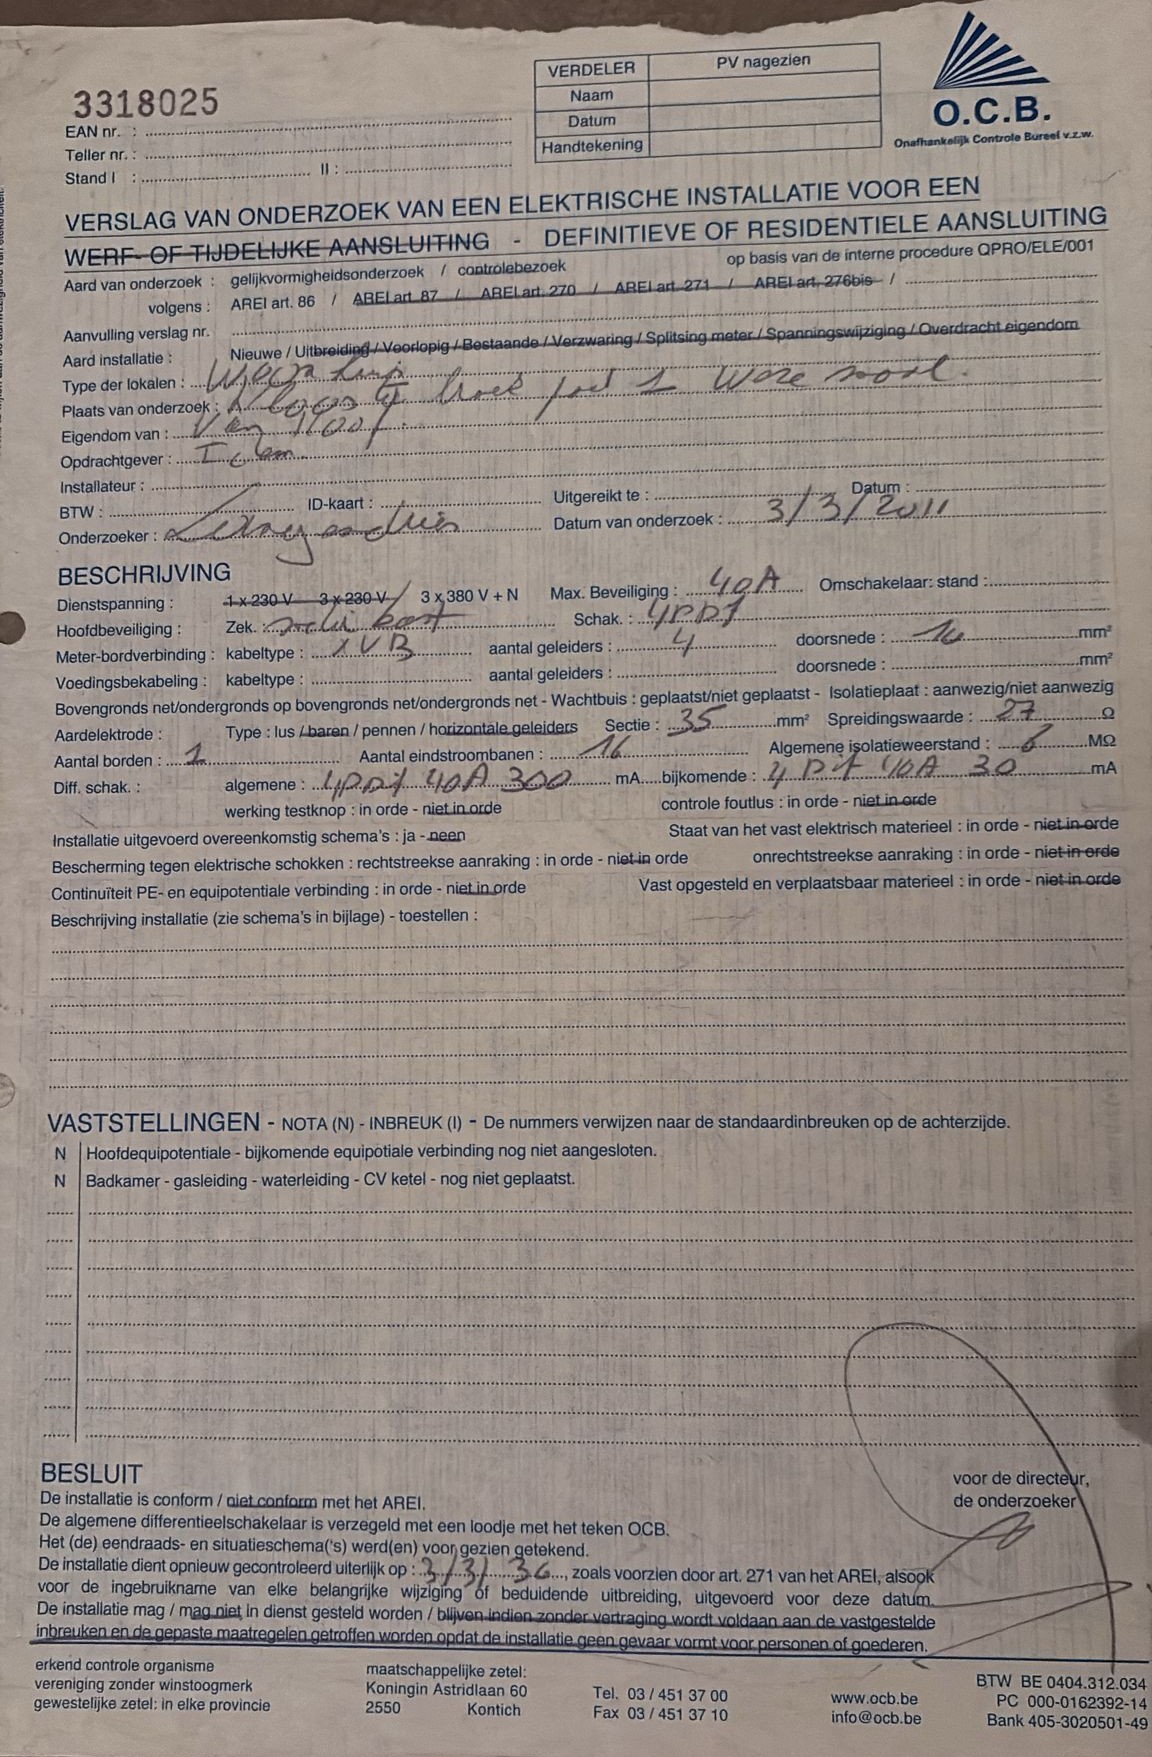 3318025
EAN nr. :
Teller nr. :
Stand I : II :
VERDELER PV nagezien
Naam
Datum
Handtekening
O.C.B.
Onafhankelijk Controle Bureel v.z.w.
VERSLAG VAN ONDERZOEK VAN EEN ELEKTRISCHE INSTALLATIE VOOR EEN
WERF- OF TIJDELIJKE AANSLUITING - DEFINITIEVE OF RESIDENTIELE AANSLUITING
op basis van de interne procedure QPRO/ELE/001
Aard van onderzoek : gelijkvormigheidsonderzoek / controlebezoek
volgens : AREI art. 86 / AREI art. 87 / AREI art. 270 / AREI art. 271 / AREI art. 276bis /
Aanvulling verslag nr.
Aard installatie : Nieuwe / Uitbreiding / Voorlopig / Bestaande / Verzwaring / Splitsing meter / Spanningswijziging / Overdracht eigendom
Type der lokalen :
Plaats van onderzoek :
Eigendom van : Van
Opdrachtgever : Idem
Installateur :
BTW : ID-kaart : Uitgereikt te : Datum :
Onderzoeker : Datum van onderzoek : 3/3/2011
BESCHRIJVING
Dienstspanning : 1 x 230 V 3 x 230 V / 3 x 380 V + N Max. Beveiliging : 40A Omschakelaar: stand :
Hoofdbeveiliging : Zek. : Schak. :
Meter-bordverbinding : kabeltype : XVB aantal geleiders : 4 doorsnede : 16 mm²
Voedingsbekabeling : kabeltype : aantal geleiders : doorsnede : mm²
Bovengronds net/ondergronds op bovengronds net/ondergronds net - Wachtbuis : geplaatst/niet geplaatst - Isolatieplaat : aanwezig/niet aanwezig
Aardelektrode : Type : lus / baren / pennen / horizontale geleiders Sectie : 35 mm² Spreidingswaarde : 27 Ω
Aantal borden : 1 Aantal eindstroombanen : 16 Algemene isolatieweerstand : 6 MΩ
Diff. schak. : algemene : 4PDif 40A 300 mA bijkomende : 4 Dif 40A 30 mA
werking testknop : in orde - niet in orde controle foutlus : in orde - niet in orde
Installatie uitgevoerd overeenkomstig schema's : ja - neen Staat van het vast elektrisch materieel : in orde - niet in orde
Bescherming tegen elektrische schokken : rechtstreekse aanraking : in orde - niet in orde onrechtstreekse aanraking : in orde - niet in orde
Continuïteit PE- en equipotentiale verbinding : in orde - niet in orde Vast opgesteld en verplaatsbaar materieel : in orde - niet in orde
Beschrijving installatie (zie schema's in bijlage) - toestellen :
VASTSTELLINGEN - NOTA (N) - INBREUK (I) - De nummers verwijzen naar de standaardinbreuken op de achterzijde.
N Hoofdequipotentiale - bijkomende equipotiale verbinding nog niet aangesloten.
N Badkamer - gasleiding - waterleiding - CV ketel - nog niet geplaatst.
BESLUIT
De installatie is conform / niet conform met het AREI.
De algemene differentieelschakelaar is verzegeld met een loodje met het teken OCB.
Het (de) eendraads- en situatieschema('s) werd(en) voor gezien getekend.
De installatie dient opnieuw gecontroleerd uiterlijk op : 3/3/36, zoals voorzien door art. 271 van het AREI, alsook
voor de ingebruikname van elke belangrijke wijziging of beduidende uitbreiding, uitgevoerd voor deze datum.
De installatie mag / mag niet in dienst gesteld worden / blijven indien zonder vertraging wordt voldaan aan de vastgestelde
inbreuken en de gepaste maatregelen getroffen worden opdat de installatie geen gevaar vormt voor personen of goederen.
voor de directeur,
de onderzoeker
erkend controle organisme
vereniging zonder winstoogmerk
gewestelijke zetel: in elke provincie
maatschappelijke zetel:
Koningin Astridlaan 60
2550 Kontich
Tel. 03 / 451 37 00
Fax 03 / 451 37 10
www.ocb.be
info@ocb.be
BTW BE 0404.312.034
PC 000-0162392-14
Bank 405-3020501-49